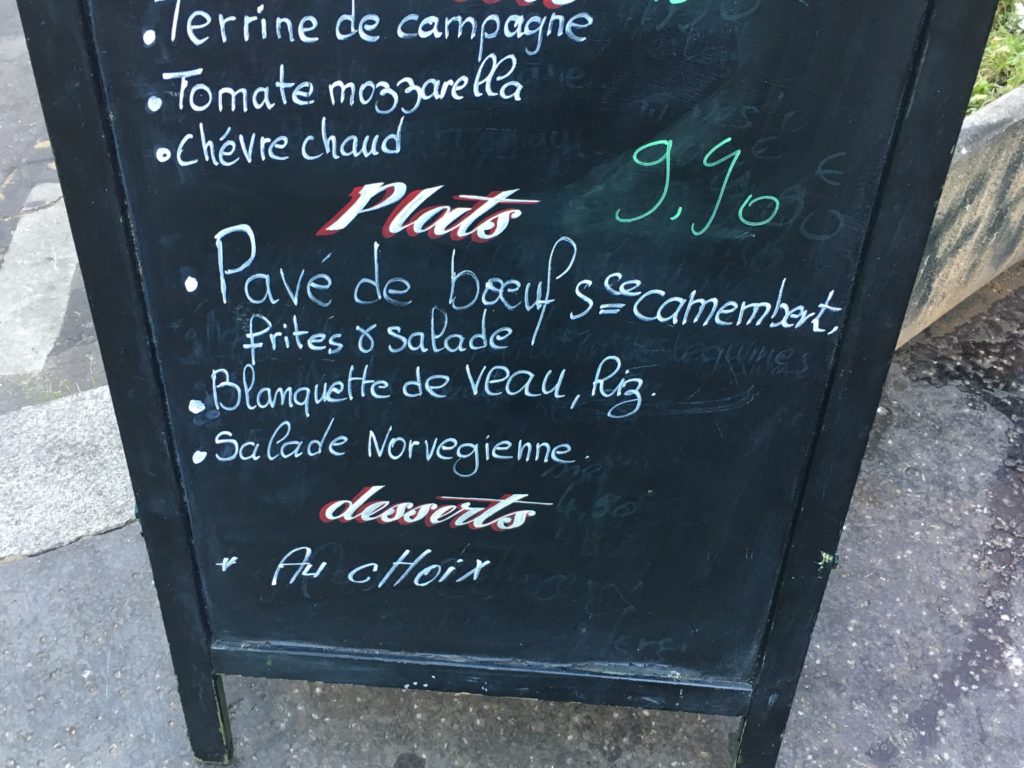 • Terrine de campagne
• Tomate mozzarella
• Chévre chaud
Plats 9,90
• Pavé de bœuf Sce camembert,
frites & salade
• Blanquette de veau, Riz.
• Salade Norvegienne.
desserts
* Au cHoix